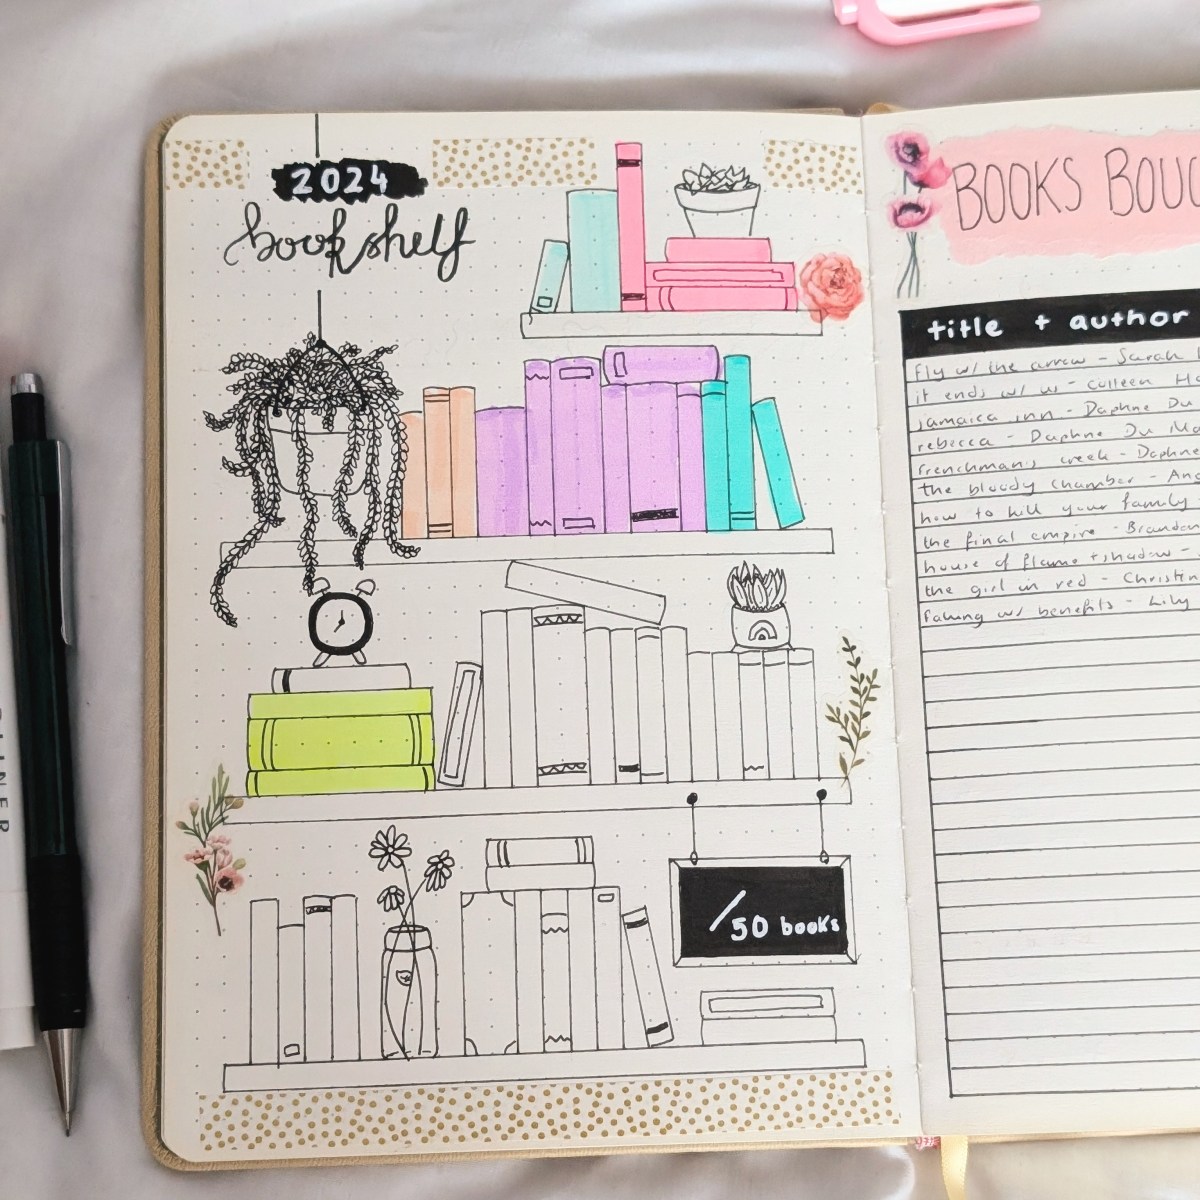 2024
bookshelf
/50 books
BOOKS BOUG
title + author
Fly w/ the arrow - Sarah
it ends w/ us - Colleen Ho
jamaica inn - Daphne Du
rebecca - Daphne Du Ma
frenchman's creek - Daphne
the bloody chamber - Ang
how to kill your family
the final empire - Brandon
house of flame + shadow -
the girl in red - Christin
Faking w/ benefits - Lily